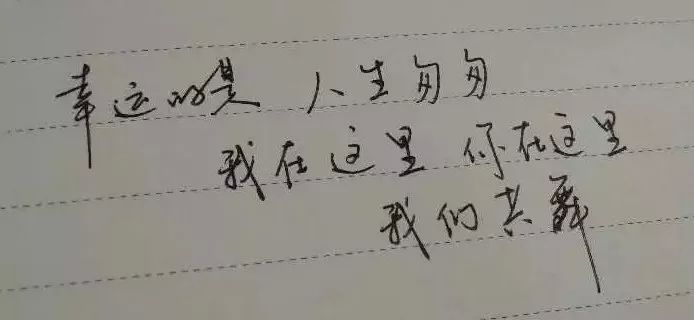 幸运的是 人生匆匆
我在这里 你在这里
我们共舞